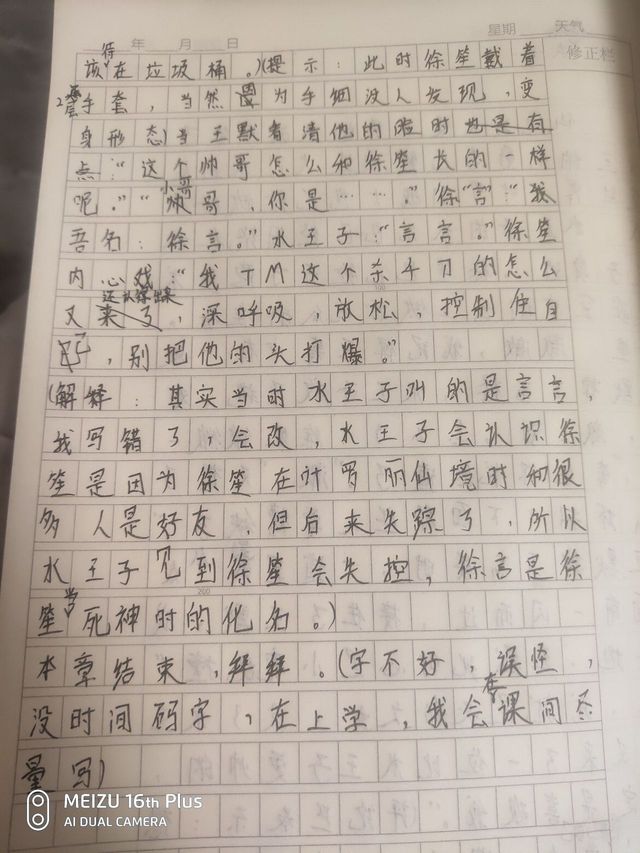 星期 天气
年 月 日
修正栏
该待在垃圾桶。)(提示：此时徐笙戴着
手套，当然因为手细没人发现，变
身形态)当王默看清他的脸时也是有
点："这个帅哥怎么和徐笙长的一样
呢。""小哥哥，你是……。"徐"言"："我
吾名：徐言。"水王子："言言。"徐笙
内心戏："我TM这个杀千刀的怎么
又还认得出来，深呼吸，放松，控制住自
己，别把他的头打爆。"
(解释：其实当时水王子叫的是言言，
我写错了，会改，水王子会认识徐
笙是因为徐笙在叶罗丽仙境时和很
多人是好友，但后来失踪了，所以
水王子见到徐笙会失控，徐言是徐
笙当死神时的化名。)
200
本章结束，拜拜。(字不好，误怪，
没时间码字，在上学，我会在课间尽
量写)
MEIZU 16th Plus
AI DUAL CAMERA